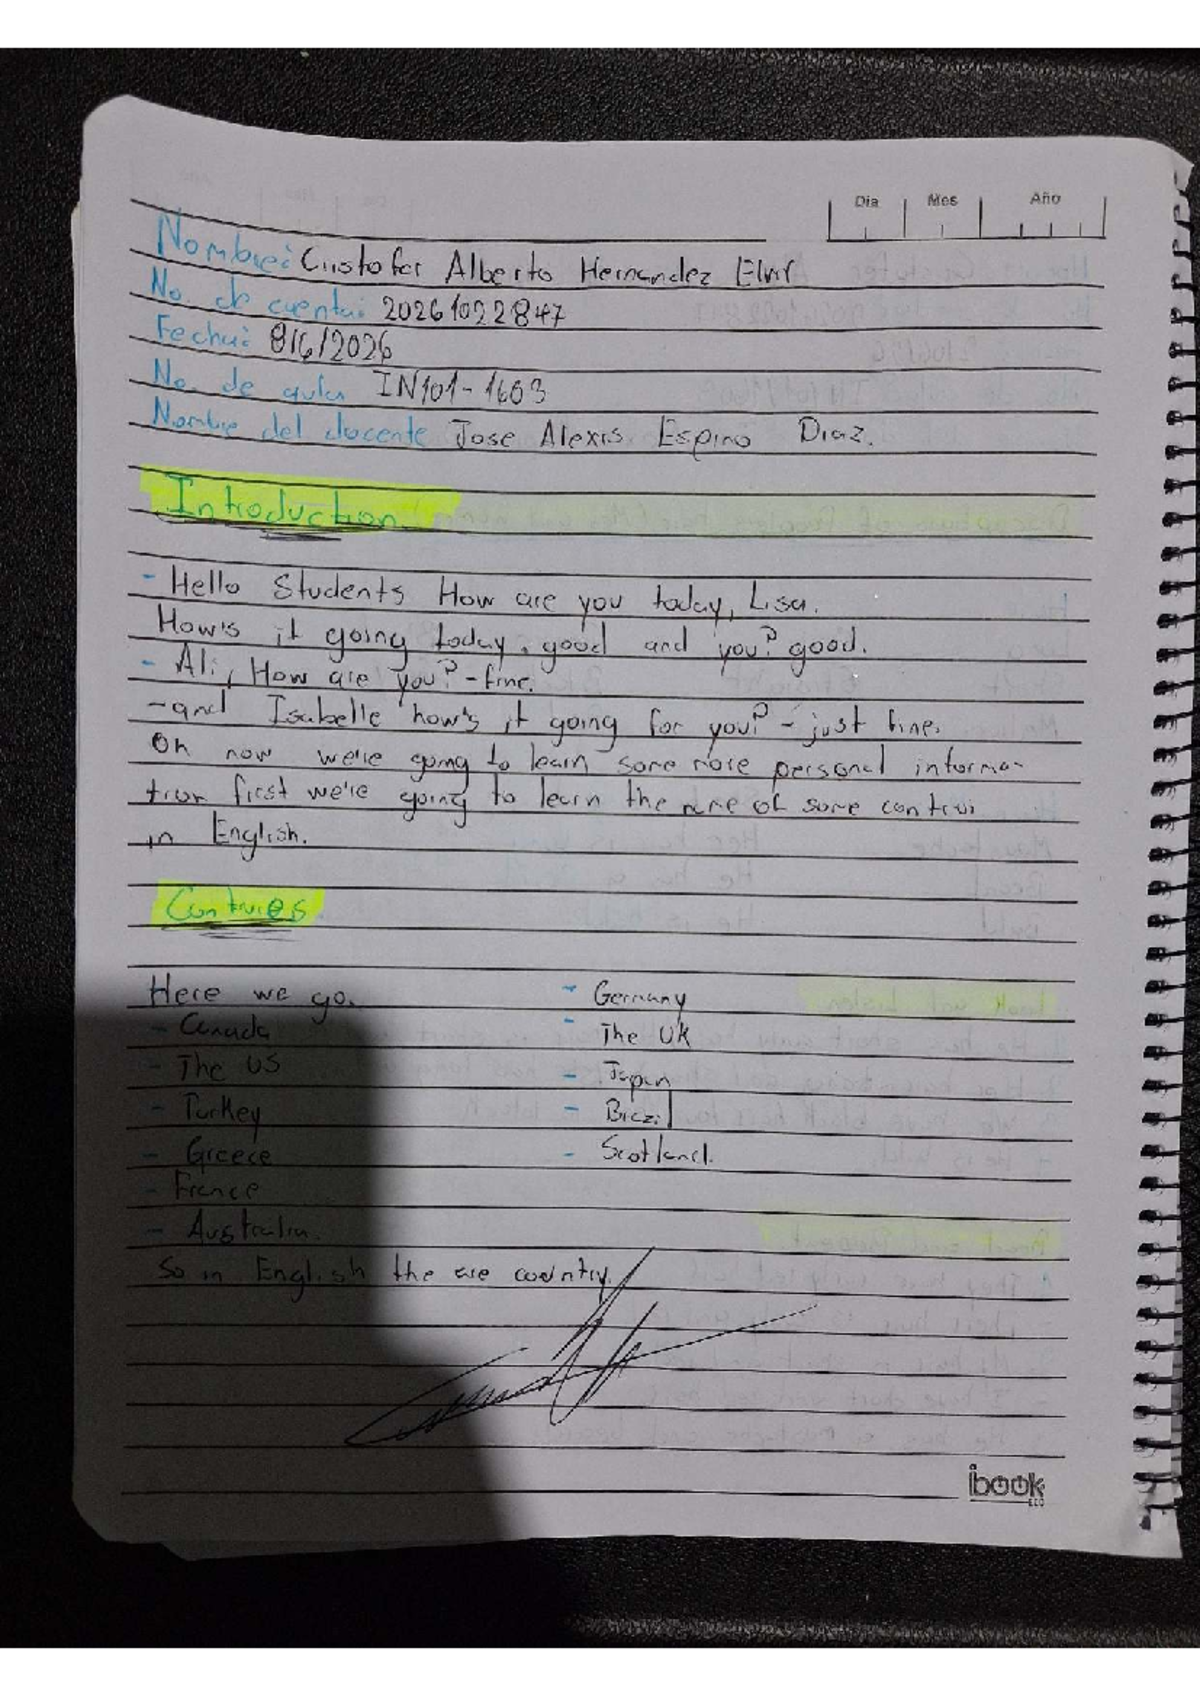 Dia Mes Año
Nombre: Cristofer Alberto Hernandez Elvir
No. de cuenta: 20261022847
Fecha: 8/6/2026
No. de aula IN101-1603
Nombre del docente Jose Alexis Espino Diaz.
Introduction
- Hello Students How are you today, Lisa.
How's it going today, good and you? good.
- Ali, How are you? - fine.
- and Isabelle how's it going for you? - just fine.
Oh now we're going to learn some more personal informa-
tion first we're going to learn the name of some contrui
in English.
Contries
Here we go.
- Canada
- The US
- Turkey
- Greece
- France
- Australia.
- Germany
- The UK
- Japan
- Brazil
- Scotland.
So in English the are country.
ibook